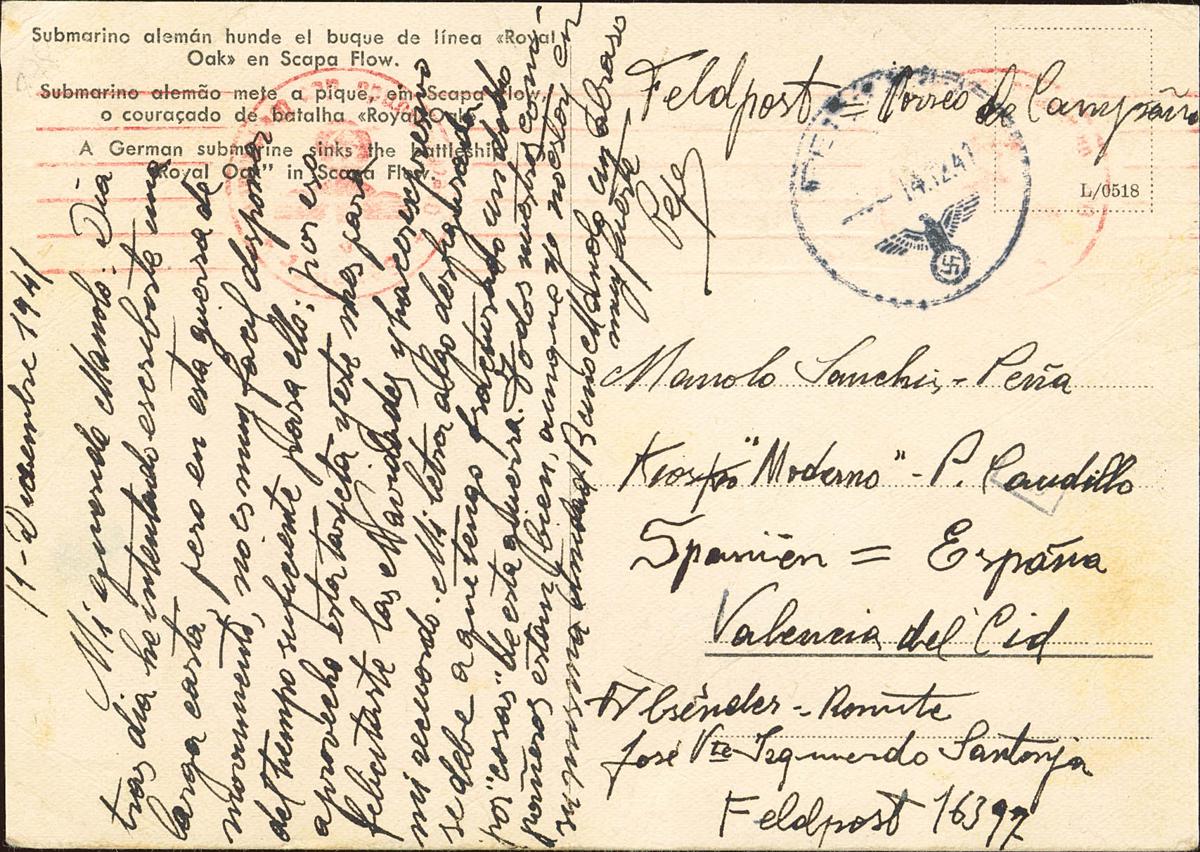 Submarino alemán hunde el buque de línea «Royal
Oak» en Scapa Flow.
Submarino alemão mete a pique, em Scapa Flow,
o couraçado de batalha «Royal Oak».
A German submarine sinks the battleship
"Royal Oak" in Scapa Flow.
11-Diciembre 1941
Mi querido Manolo: Día
tras día he intentado escribirte una
larga carta, pero en esta guerra de
movimiento, no es muy fácil disponer
del tiempo suficiente para ello; por eso
aprovecho esta tarjeta y este mes para
felicitarte las Navidades y hacer expresivo
mi recuerdo. Mi letra algo desfigurada
se debe a que tengo fracturado un dedo
por "cosas" de esta guerra. Todos nuestros com-
pañeros están bien, aunque yo no estoy en
su misma unidad. Manolo un abrazo
muy fuerte
Pepe
Feldpost = Correo de Campaña
14.12.41
L/0518
Manolo Sanchis-Peña
Kiosko "Moderno" - P. Caudillo
Spanien = España
Valencia del Cid
Absénder - Remite
José Vte Izquierdo Santonja
Feldpost 16397